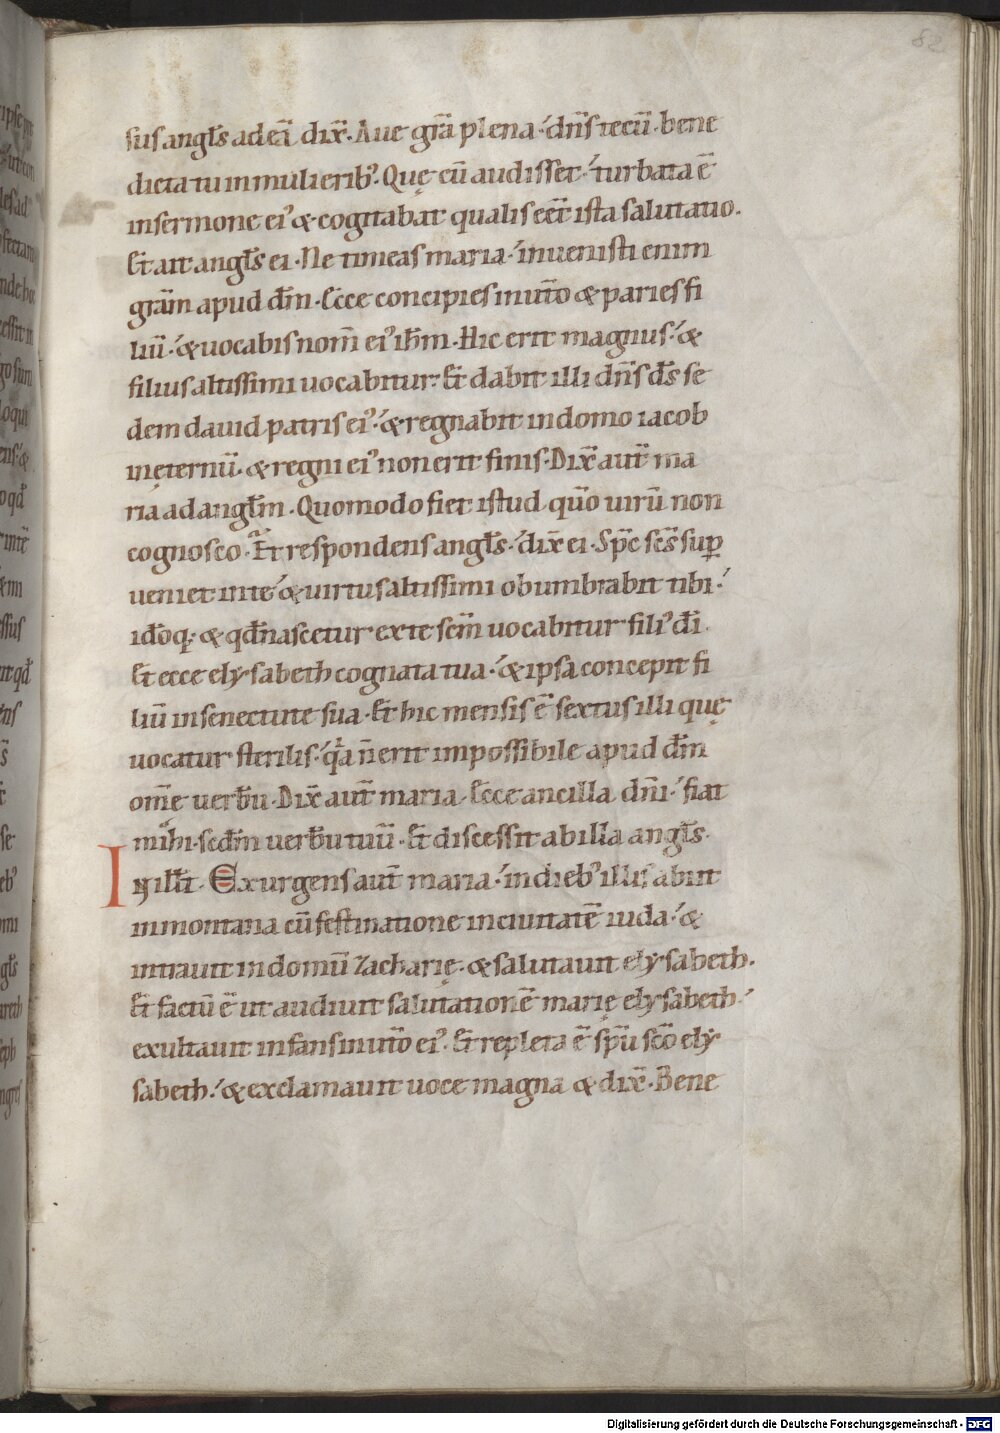 82
sus angl̅s ad eā dix̅. Aue gr̅a plena. dn̅s tecū. bene
dicta tu in mulierib;. Quę cū audisset. turbata ē
in sermone ei' & cogitabat qualis eēt ista salutatio.
Et ait angl̅s ei. Ne timeas maria. inuenisti enim
gr̅am apud dm̅. Ecce concipies in utōo & paries fi
liū. & uocabis nom̅ ei' ihm̅. Hic erit magnus. &
filius altissimi uocabitur. Et dabit illi dn̅s ds̅ se
dem dauid patris ei'. & regnabit in domo iacob
in ęternū. & regni ei' non erit finis. Dix̅ aut̅ ma
ria ad angl̅m. Quomodo fiet istud quō uirū non
cognosco. Et respondens angl̅s. dix̅ ei. Sp̅c sc̅s sup̱
ueniet in te & uirtus altissimi obumbrabit tibi.
ido̅q;. & qd̅ nascetur ex te sc̅m uocabitur fili' di̅.
Et ecce elysabeth cognata tua. & ipsa concepit fi
liū in senectute sua. Et hic mensis ē sextus illi quę
uocatur sterilis. qa n̅ erit impossibile apud dm̅
om̅e uerbū. Dix̅ aut̅ maria. Ecce ancilla dn̅i. fiat
mihi scdm̅ uerbū tuū. Et discessit ab illa angl̅s.
In ill̅ t̅. Exurgens aut̅ maria. in dieb; illis abiit
in montana cū festinatione in ciuitatē iuda. &
intrauit in domū Zacharię. & salutauit elysabeth.
Et factū ē ut audiuit salutationē marię elysabeth.
exultauit infans in utōo ei'. Et repleta ē sp̅u sc̅o ely
sabeth. & exclamauit uoce magna & dix̅. Bene
Digitalisierung gefördert durch die Deutsche Forschungsgemeinschaft - DFG